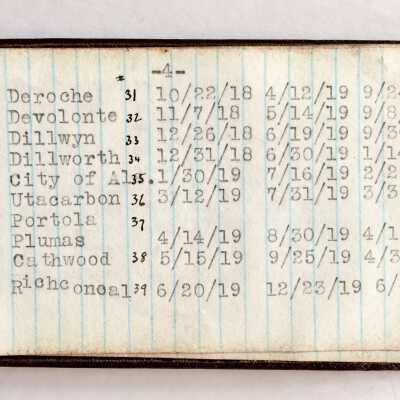 -4-
Deroche 31 10/22/18 4/12/19 9/24
Devolonte 32 11/7/18 5/14/19 9/8/
Dillwyn 33 12/26/18 6/19/19 9/30
Dillworth 34 12/31/18 6/30/19 1/14
City of Al. 35 1/30/19 7/16/19 2/2
Utacarbon 36 3/12/19 7/31/19 3/3
Portola 37
Plumas 4/14/19 8/30/19 4/1
Cathwood 38 5/15/19 9/25/19 4/3
Richconoal 39 6/20/19 12/23/19 6/